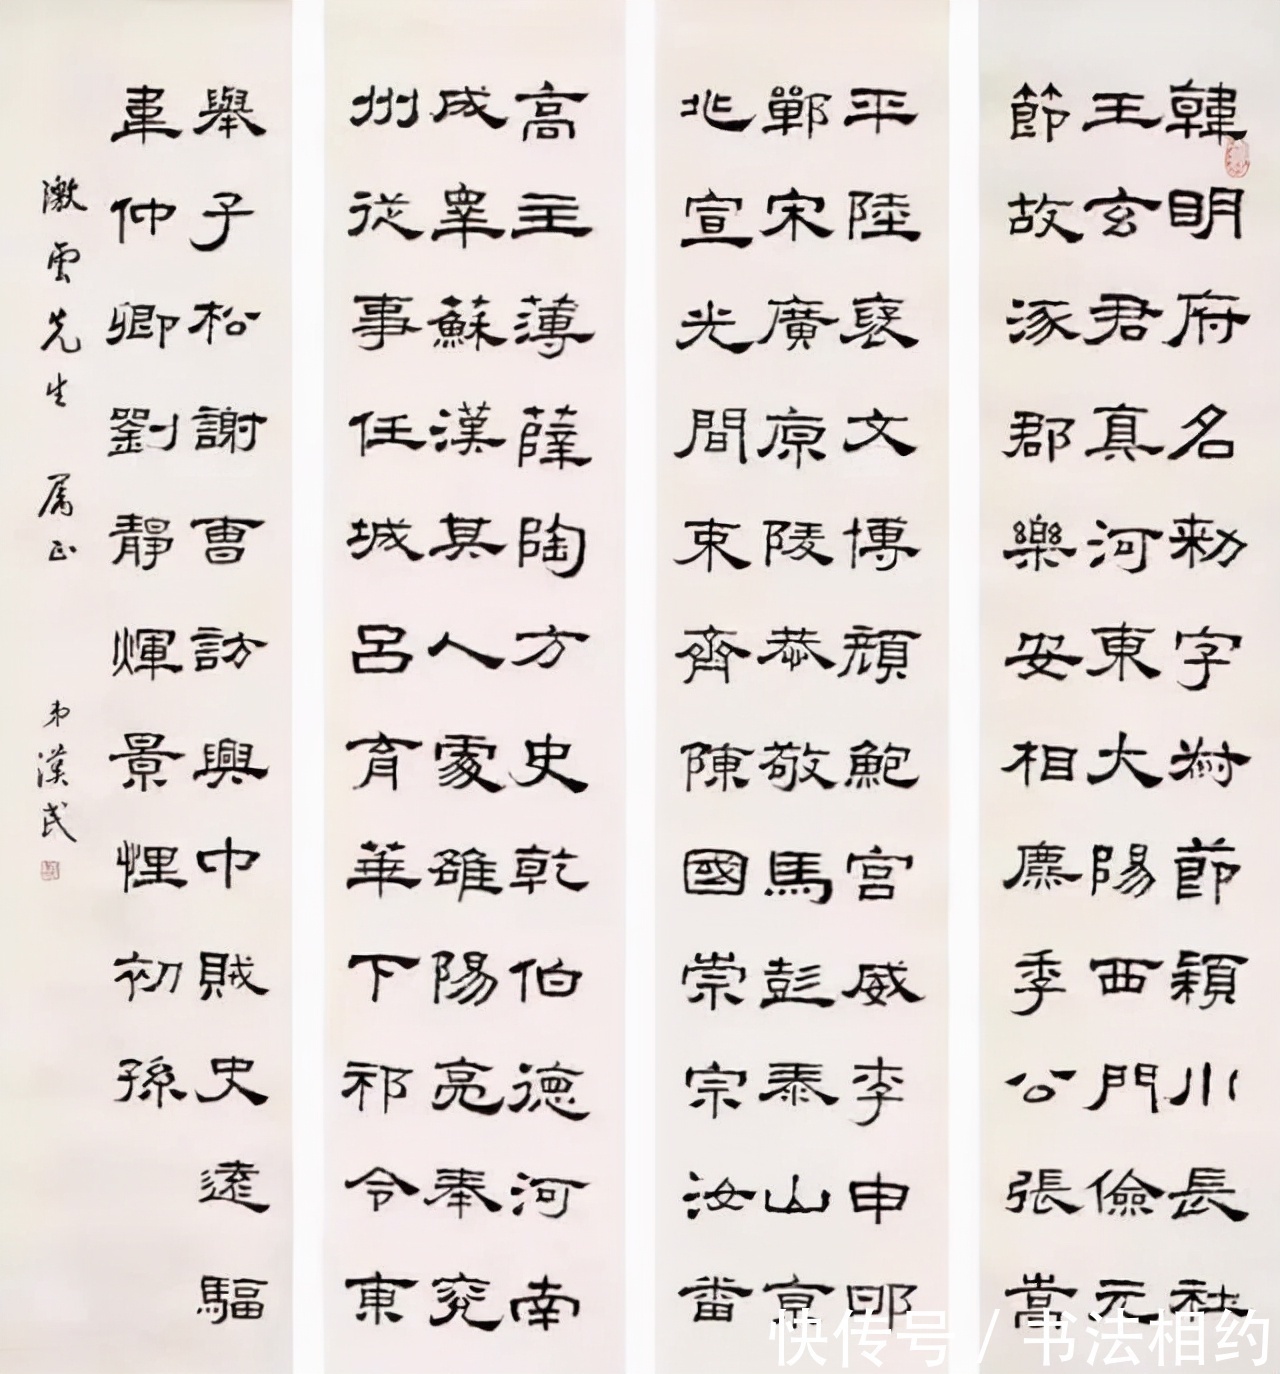 韓明府名勑字叔節穎川長社
王玄君真河東大陽西門儉元
節故涿郡樂安相麃季公張嵩
平陸襃文博顏鮑宮威李申明
鄲宋廣原陵恭敬馬彭泰山
北宣光間束齊陳國崇宗汝番
高王薄薛陶方史乾伯德河南
成睪蘇漢其人處雒陽亮奉兖
州從事任城呂育華下祁令東
舉子松謝曹訪興巾賊史遠驅
韋仲卿劉靜煇景悝初孫
澂雲先生 屬正 弟漢民
快传号 / 书法相约